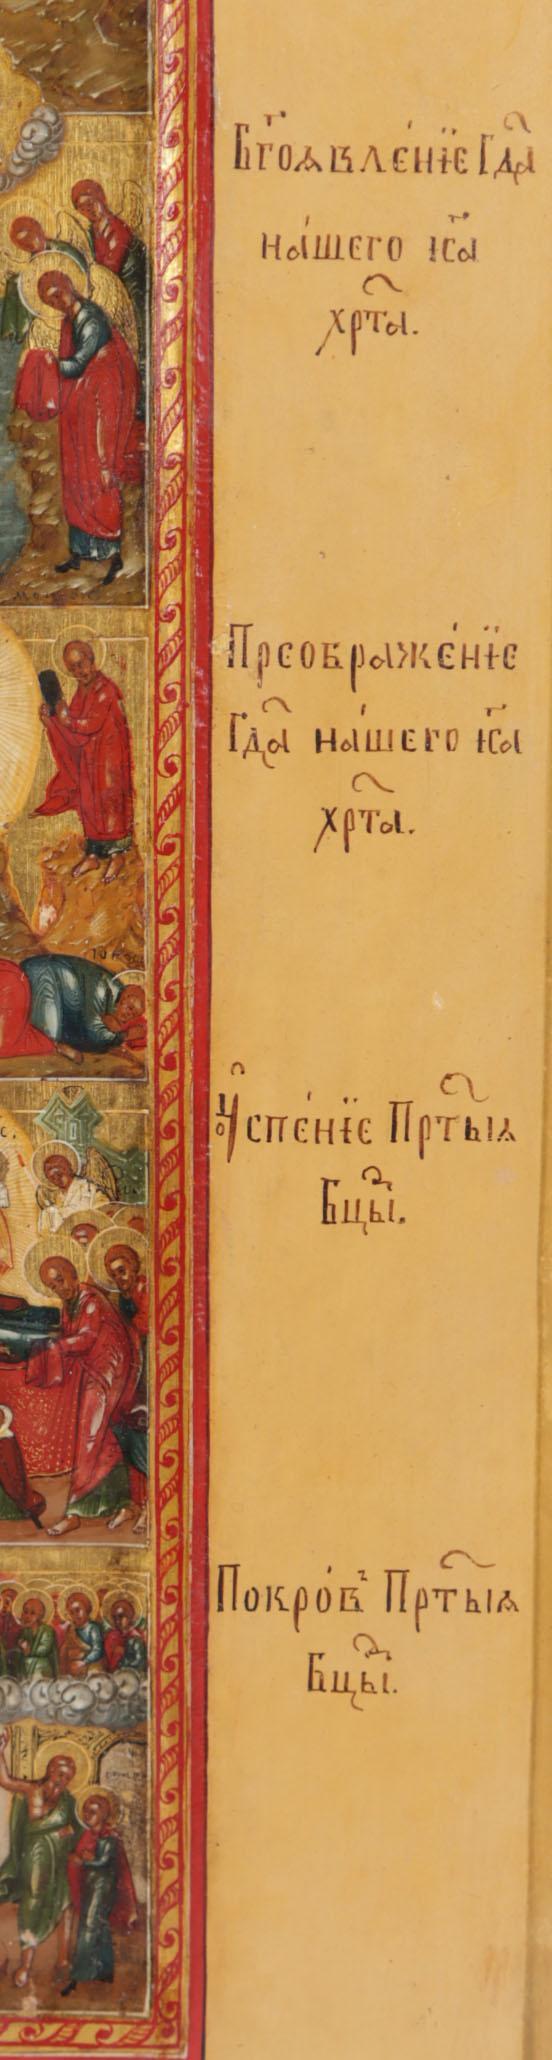 Бг҃оявле́нїе Гдⷭ҇а
на́шего і҆са
хрⷭ҇та̀.
Преображе́нїе
Гдⷭ҇а на́шего і҆са
хрⷭ҇та̀.
Оу҆спе́нїе Прⷭ҇тыѧ
Бцⷣы.
Покро́въ Прⷭ҇тыѧ
Бцⷣы.